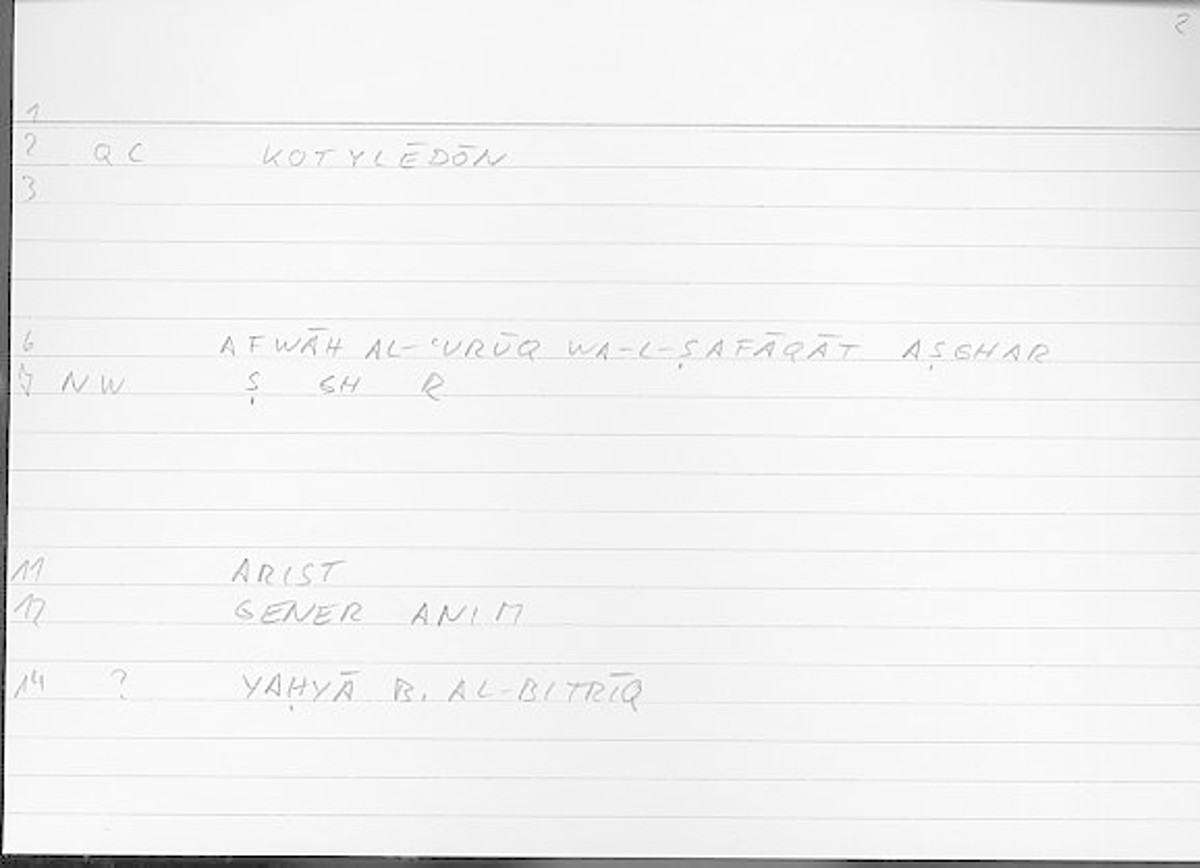 2
1
2 QC KOTYLĒDŌN
3
6 AFWĀH AL-ʿURŪQ WA-L-ṢAFĀQĀT AṢGHAR
7 NW Ṣ GH R
11 ARIST
12 GENER ANIM
14 ? YAḤYĀ B. AL-BITRĪQ